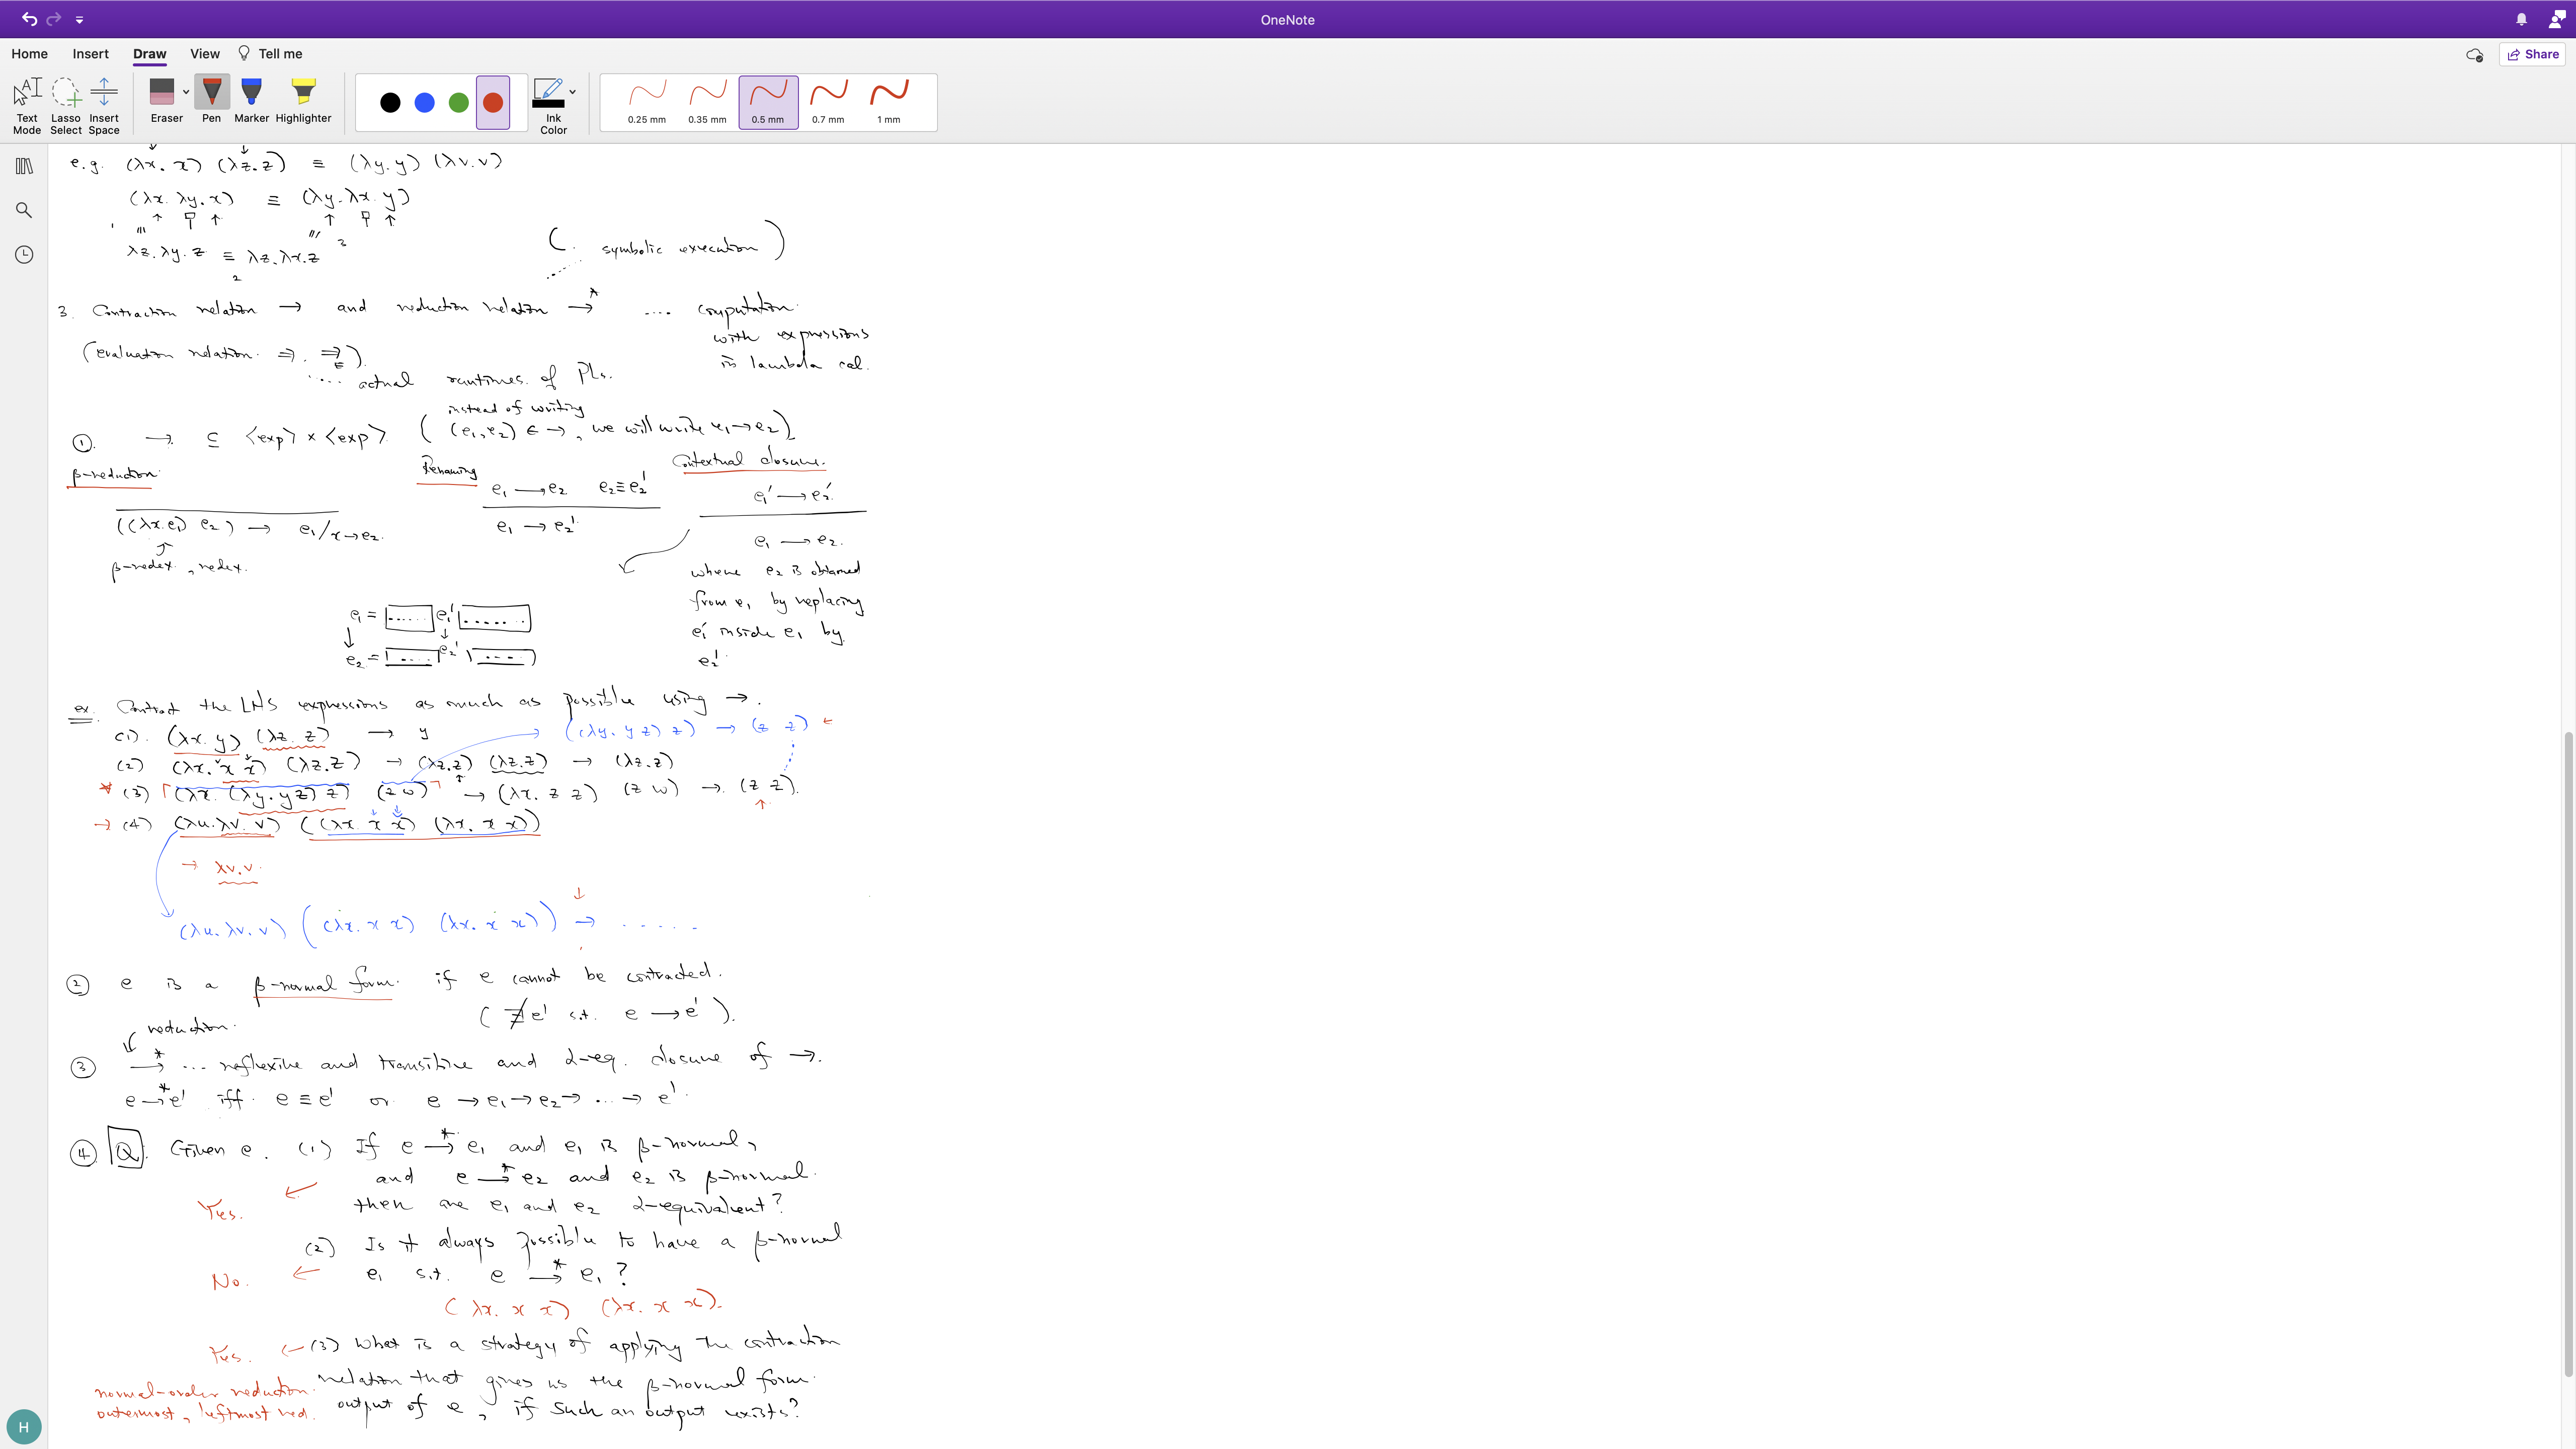 OneNote
Home Insert Draw View Tell me
Share
Text Mode
Lasso Select
Insert Space
Eraser
Pen
Marker
Highlighter
Ink Color
0.25 mm
0.35 mm
0.5 mm
0.7 mm
1 mm
e.g. (λx. x) (λz. z) ≡ (λy. y) (λv. v)
(λx. λy. x) ≡ (λy. λx. y)
λz. λy. z ≡ λz. λx. z
( symbolic execution )
3. Contraction relation → and reduction relation →* .... computation
with expressions
in lambda cal.
(evaluation relation ⇒. ⇒E).
.... actual runtimes of PLs.
instead of writing
① → ⊆ <exp> × <exp> ( (e1, e2) ∈ →, we will write e1 → e2 )
β-reduction
Renaming
Contextual closure.
e1 → e2 e2 ≡ e2'
e1' → e2'
((λx. e1) e2) → e1/x→e2.
e1 → e2'
e1 → e2.
β-redex, redex.
where e2 is obtained
from e1 by replacing
e1' inside e1 by
e2'.
e1 = [.....] e1' [.....]
e2 = [....] e2' [....]
ex. Contract the LHS expressions as much as possible using →.
(1). (λx. y) (λz. z) → y
((λy. y z) z) → (z z) ←
(2) (λx. x x) (λz. z) → (λz. z) (λz. z) → (λz. z)
* (3) (λx. (λy. y z) z) (z w) → (λx. z z) (z w) → (z z).
→ (4) (λu. λv. v) ((λx. x x) (λx. x x))
→ λv. v.
(λu. λv. v) ((λx. x x) (λx. x x)) → .....
② e is a β-normal form if e cannot be contracted.
( ∄ e' s.t. e → e' ).
reduction.
③ →* ... reflexive and transitive and α-eq. closure of →.
e →* e' iff e ≡ e' or e → e1 → e2 → ... → e'.
④ Q. Given e. (1) If e →* e1 and e1 is β-normal,
and e →* e2 and e2 is β-normal.
Yes. ← then are e1 and e2 α-equivalent?
(2) Is it always possible to have a β-normal
No. ← e1 s.t. e →* e1 ?
(λx. x x) (λx. x x).
Yes. ← (3) What is a strategy of applying the contraction
relation that gives us the β-normal form
normal-order reduction.
output of e, if such an output exists?
outermost, leftmost red.
H